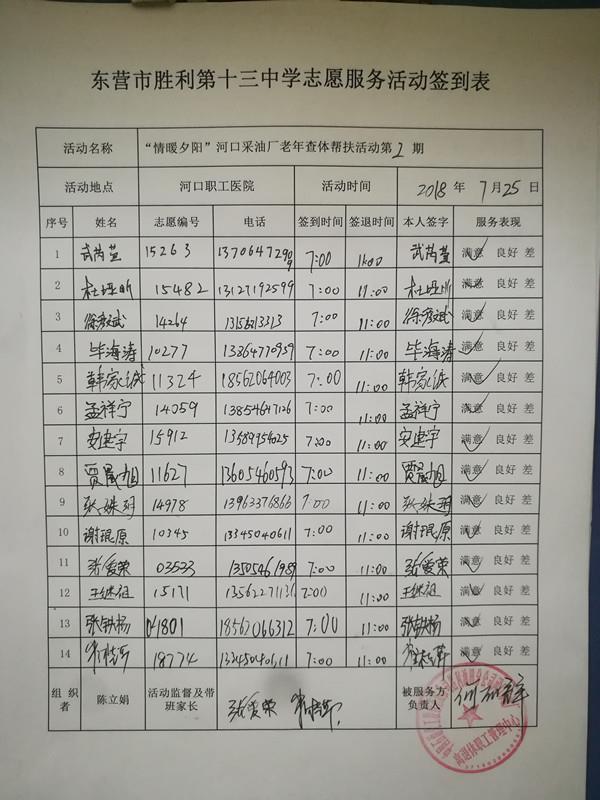 东营市胜利第十三中学志愿服务活动签到表
活动名称 “情暖夕阳”河口采油厂老年查体帮扶活动第2期
活动地点 河口职工医院 活动时间 2018年7月25日
序号 姓名 志愿编号 电话 签到时间 签退时间 本人签字 服务表现
1 武芮萱 15263 13706472909 7:00 11:00 武芮萱 满意 良好 差
2 15482 13127192599 7:00 11:00 满意 良好 差
3 徐彦斌 14264 7:00 11:00 徐彦斌 满意 良好 差
4 毕海涛 10277 13864770959 7:00 11:00 毕海涛 满意 良好 差
5 韩家诚 11324 18562064003 7:00 11:00 韩家诚 满意 良好 差
6 孟祥宁 14059 13854647126 7:00 11:00 孟祥宁 满意 良好 差
7 安建宇 15912 13589954025 7:00 11:00 安建宇 满意 良好 差
8 贾晟旭 11627 13605460593 7:00 11:00 贾晟旭 满意 良好 差
9 张姝玥 14978 13963376866 7:00 11:00 张姝玥 满意 良好 差
10 谢珢原 10345 13345040611 7:00 11:00 谢珢原 满意 良好 差
11 张爱荣 03533 13505461989 7:00 11:00 张爱荣 满意 良好 差
12 王继祖 15171 7:00 11:00 王继祖 满意 良好 差
13 张轶杨 01801 18562066312 7:00 11:00 张轶杨 满意 良好 差
14 18774 7:00 11:00 满意 良好 差
组织者 陈立娟 活动监督及带班家长 张爱荣 被服务方负责人
离退休职工管理中心